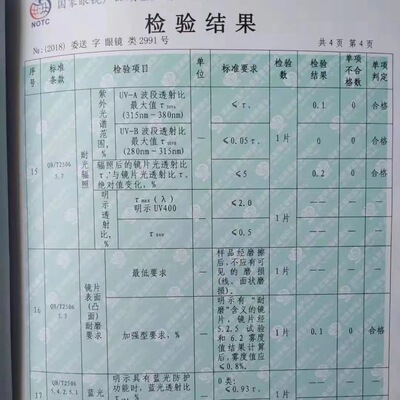 NOTC
检验结果
№: (2018) 委送 字 眼镜 类 2991 号
共 4 页 第 4 页
序号 标准条款 检验项目 单位 标准要求 检验数 检验结果 单项不合格数 单项判定
15 QB/T2506 5.7 耐光辐照
紫外光谱范围, %
UV-A 波段透射比最大值 τ
(315nm－380nm) — ≤ τ, 1片 0.1 0 合格
UV-B 波段透射比最大值 τ
(280nm－315nm) — ≤ 0.05 τ, 0 0 合格
辐照后的镜片光透射比 τ,′与镜片光透射比 τ, 绝对值变化, % — ≤5 0.2 0 合格
明示透射比, %
τmax (λ)
明示 UV400 — ≤ 2.0 1片 — — —
≤ 0.5 — — —
16 QB/T2506 5.8 镜片表面(凸面)耐磨要求
最低要求 — 样品经磨擦后, 不应有可见的磨损(线、面状磨损)。 1片 — — —
加强型要求, % — 明示有“耐磨”含义的镜片, 镜片经 5.2.5 试验和 6.2 雾度值结果计算后, 雾度值应≤0.8%。 1片 0.1 0 合格
17 QB/T2506 5.4.2, 5.1 蓝光
明示具有蓝光防护功能时, 蓝光透射比
0 类:
≤ 0.93 τ,